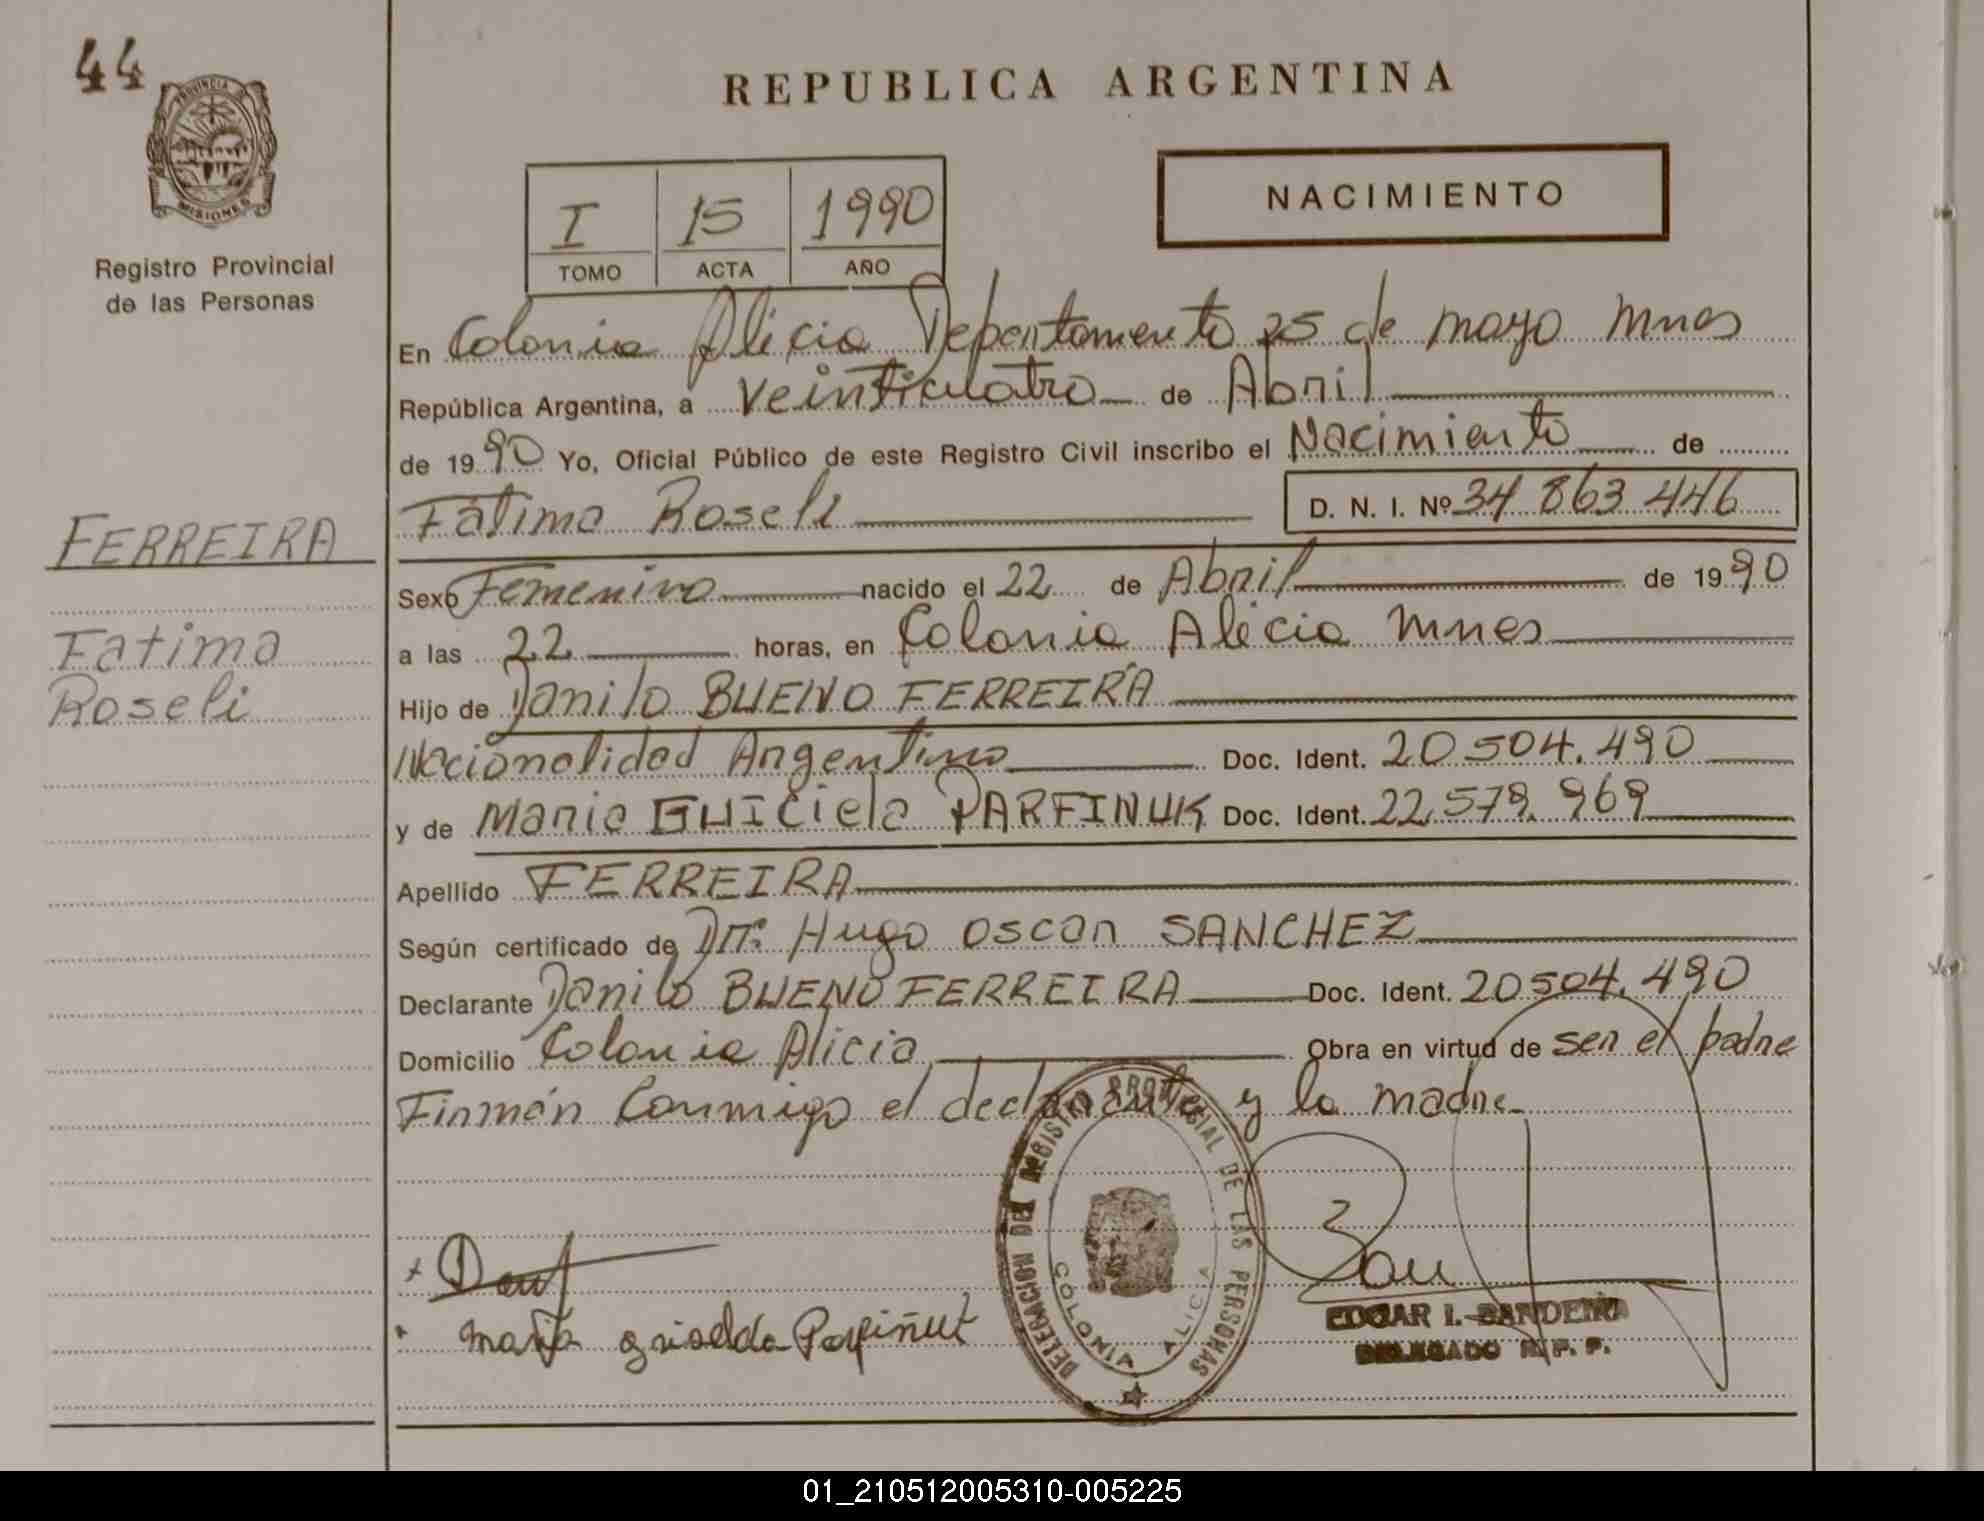 44
PROVINCIA DE
MISIONES
Registro Provincial
de las Personas
REPUBLICA ARGENTINA
NACIMIENTO
I 15 1990
TOMO ACTA AÑO
En Colonia Alicia Departamento 25 de mayo Mnes
República Argentina, a veinticuatro de Abril
de 1990 Yo, Oficial Público de este Registro Civil inscribo el Nacimiento de
Fátima Roseli D. N. I. Nº 34 863 446
FERREIRA
Fatima
Roseli
Sexo Femenino nacido el 22 de Abril de 1990
a las 22 horas, en Colonia Alicia Mnes
Hijo de Danilo BUENO FERREIRA
Nacionalidad Argentino Doc. Ident. 20504.490
y de Maria GUICiela PARFINUK Doc. Ident. 22.579.969
Apellido FERREIRA
Según certificado de Dr. Hugo Oscar SANCHEZ
Declarante Danilo BUENO FERREIRA Doc. Ident. 20504.490
Domicilio Colonia Alicia Obra en virtud de ser el padre
Firmán Conmigo el declarante y la madre
DELEGACION DEL REGISTRO PROVINCIAL DE LAS PERSONAS
COLONIA ALICIA
Maria griselda Parfiñuk
EDGAR I. BANDEIRA
DELEGADO R. P. P.
01_210512005310-005225